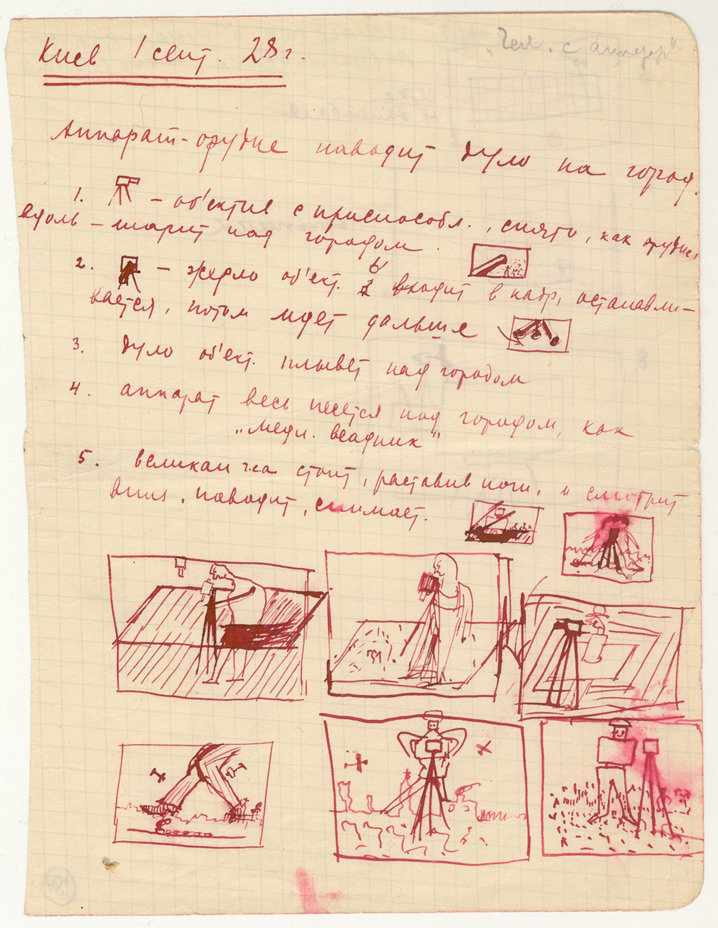 „Чел. с аппар“
Киев 1 сент. 28 г.
Аппарат-орудие наводит дуло на город.
1. – об'ектив с приспособл., снято, как орудие,
вдоль – шарит над городом.
2. – жерло об'ект. входит в кадр, останавли-
вается, потом идет дальше
3. дуло об'ект. плывет над городом
4. аппарат весь несется над городом, как
„медн. всадник“
5. великан стоит, раставив ноги, и смотрит
вниз, наводит, снимает.